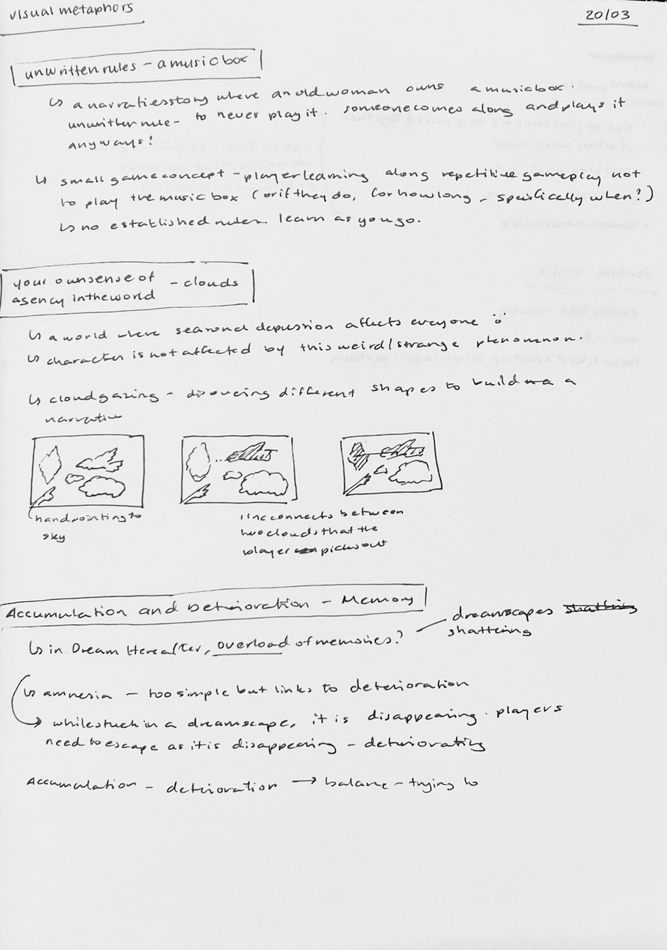 visual metaphors
20/03
unwritten rules - a music box
↳ a narrative story where an old woman owns a music box.
unwritten rule - to never play it. someone comes along and plays it
anyways!
↳ small game concept - player learning along repetitive gameplay not
to play the music box (or if they do, for how long, specifically when?)
↳ no established rules. learn as you go.
your own sense of
agency in the world - clouds
↳ a world where seasonal depression affects everyone
↳ character is not affected by this weird/strange phenomenon.
↳ cloudgazing - different shapes to build a
narrative
hand pointing to
sky
line connects between
two clouds that the
player picks out
Accumulation and Deterioration - Memory
↳ in Dream Hereafter, overload of memories?
dreamscapes shattering
shattering
↳ amnesia - too simple but links to deterioration
→ while stuck in a dreamscape, it is disappearing. players
need to escape as it is disappearing - deteriorating
Accumulation - deterioration → balance - trying to